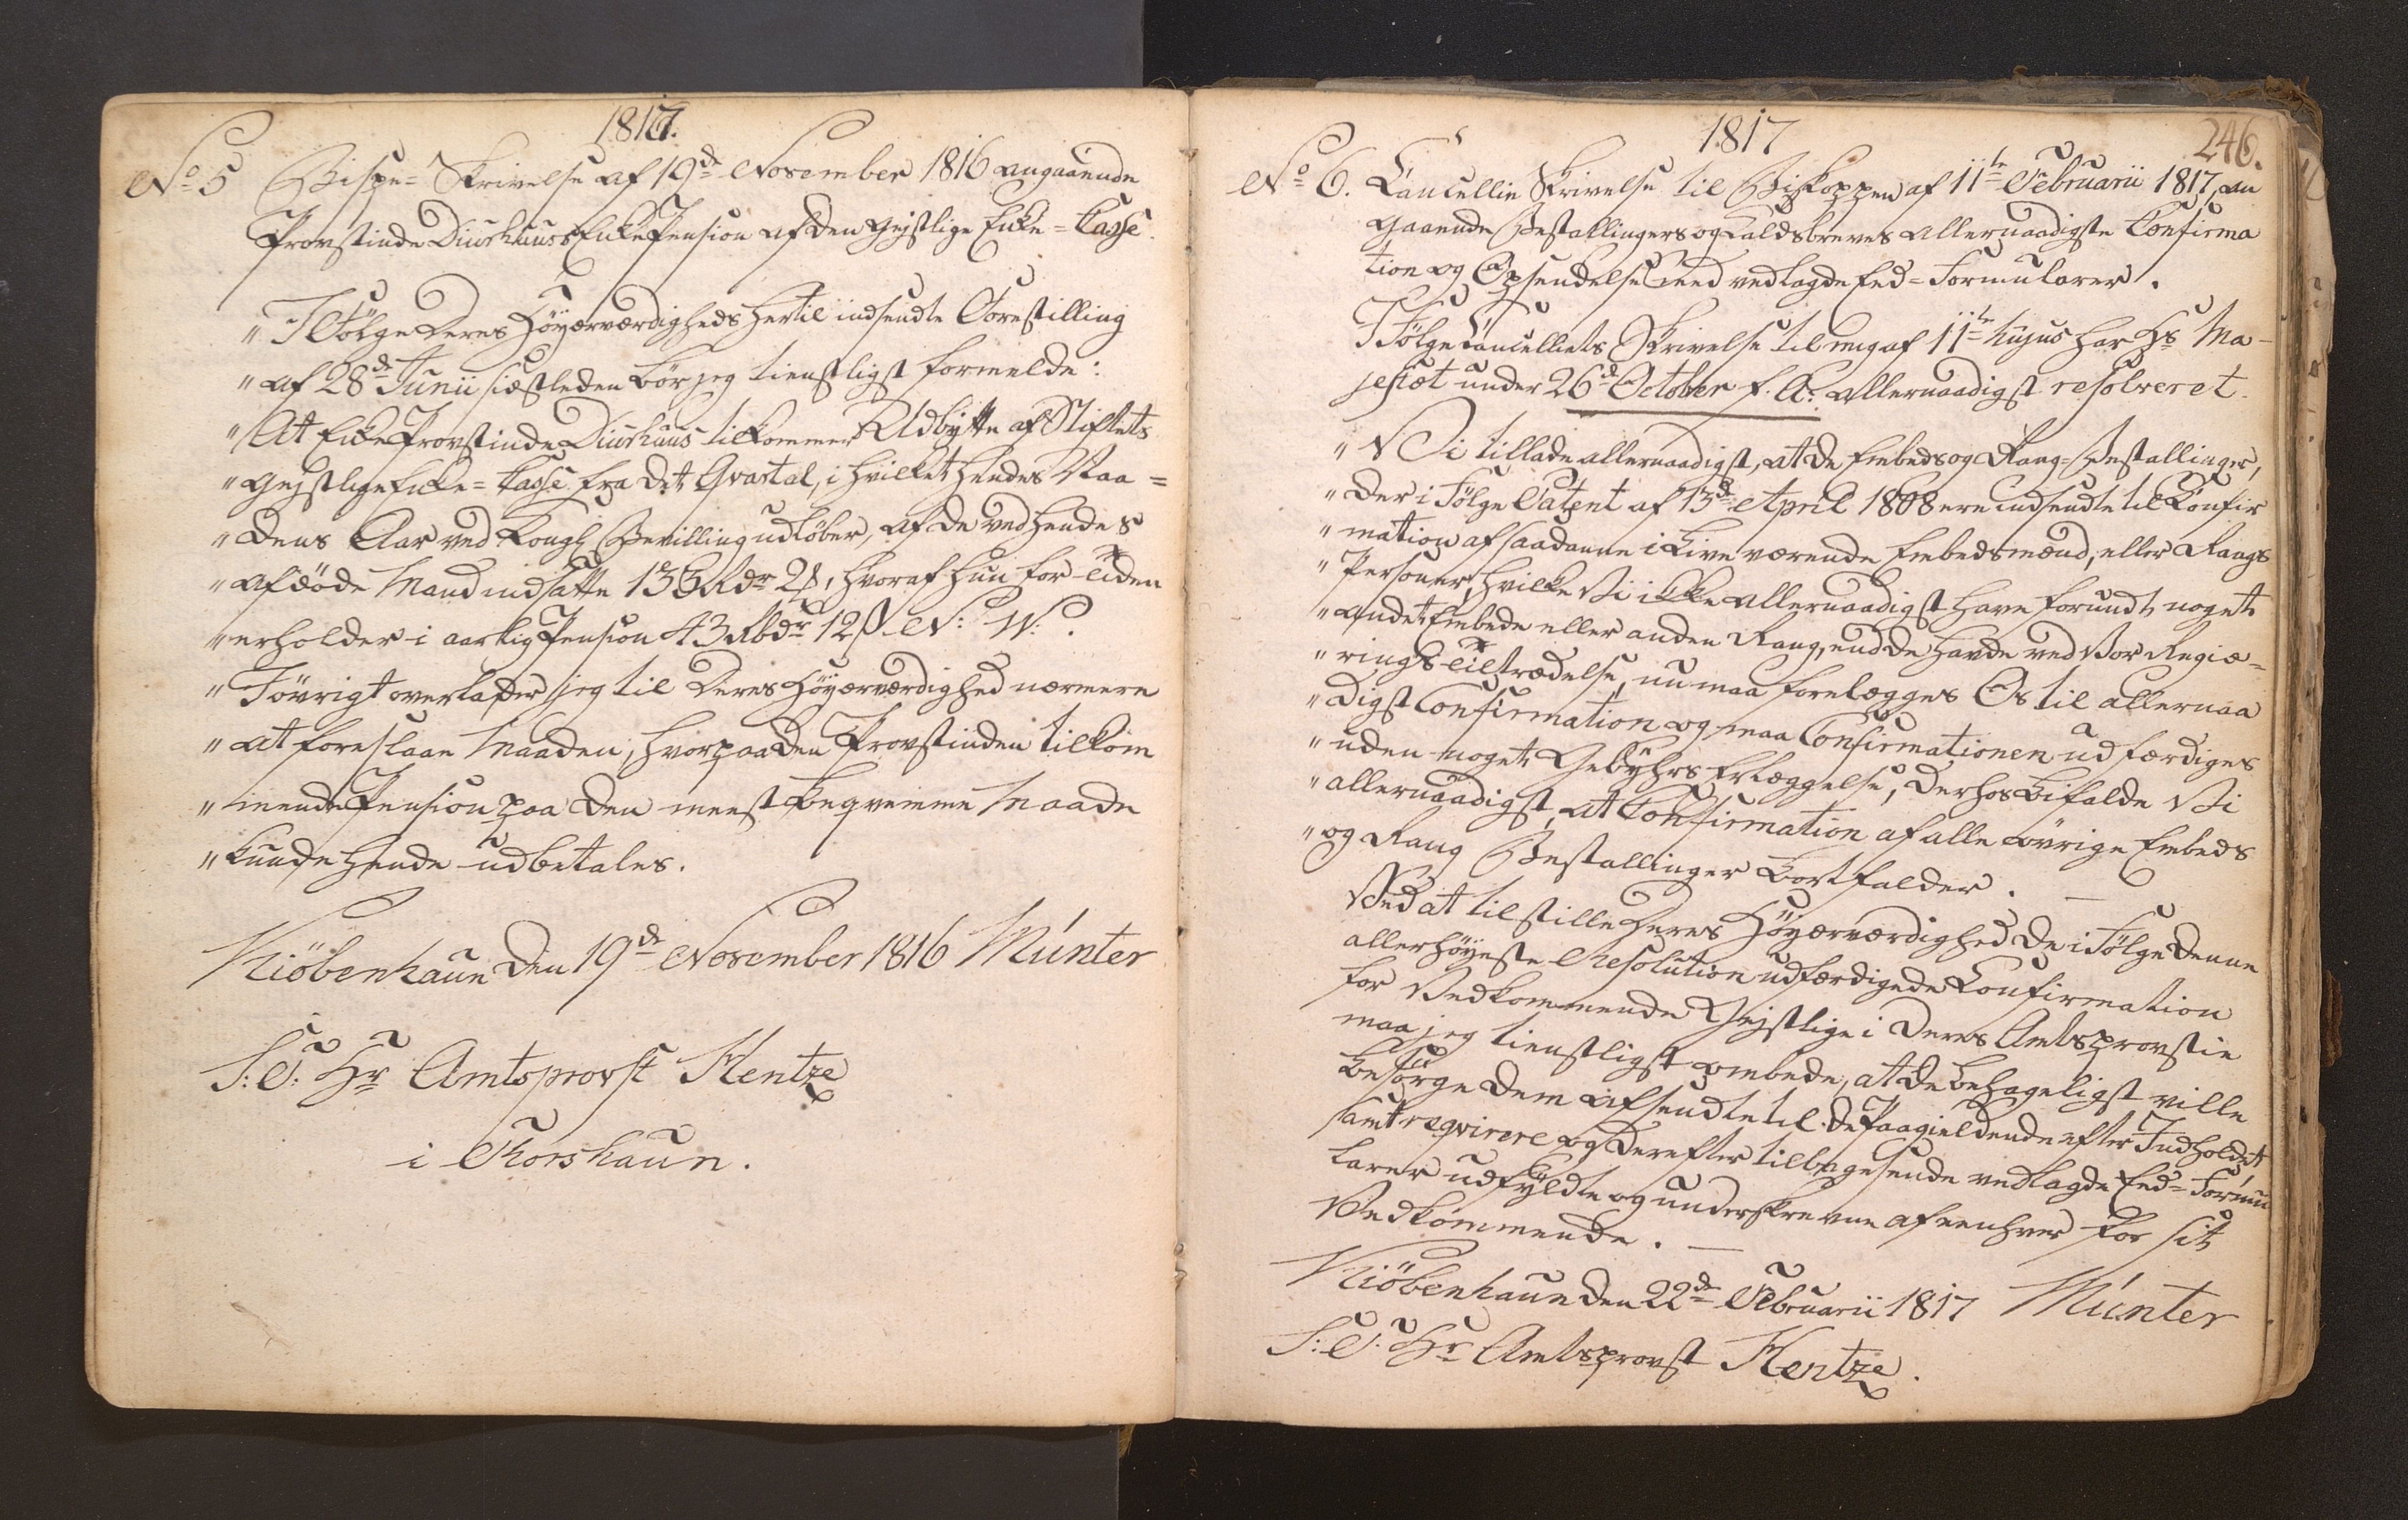 1817.
No 5 Bispe-Skrivelse af 19de November 1816 angaaende
Provstinde Diurhuus EnkePension af den Gejstlige Enke-Casse.
" I Følge Deres Höyærværdigheds hertil indsendte Forestilling
" af 28de Junii sidstleden bör jeg tienstligst formelde:
" At EnkeProvstinde Diurhuus tilkommer Udbytte af Stiftets
" Gejstlige Enke-Casse fra det Qvartal, i hvilket hendes Naa=
" dens Aar ved Kongl Bevilling udlöber, af de ved hendes
" afdöde Mand indsatte 133 Rdr 2 ß, hvoraf hun for Tiden
" erholder i aarlig Pension 43 Rbdr 12 ß N: W:.
" Iövrigt overlader jeg til Deres Höyærværdighed nærmere
" at foreslaae Maaden, hvorpaa den Provstinden tilkom
" mende Pension paa den meest beqvemme Maade
" kunde hende udbetales.
Kiöbenhaun den 19de November 1816 Münter
S: T: Hr Amtsprovst Hentze
i Thorshaun.
1817
246.
No 6. Cancellie Skrivelse til Biskoppen af 11te Februarii 1817, an
gaaende Bestallingers og Kaldsbreves allernaadigste Confirma
tion og Opsendelse med vedlagde Eed-Formularer.
I Följe Cancelliets Skrivelse til mig af 11te hujus har Hs Ma-
jestæt under 26de October f. A. allernaadigst resolveret.
" Vi tillade allernaadigst, at de Embeds og Rang-Bestallinger,
" der i Fölge Patent af 13de April 1808 ere indsendte til Confir
" mation af saadanne i Live værende Embedsmænd, eller Rangs
" Personer, hvilke Vi ikke allernaadigst have forundt noget
" andet Embede eller anden Rang, end de havde ved Vor Regie=
" rings Tiltrædelse, nu maa forelægges Os til allernaa
" digst Confirmation og maa Confirmationen udfærdiges
" uden noget Gebyhrs Erlæggelse, derhos bifalde Vi
" allernaadigst, at Confirmation af alle övrige Embeds
" og Rang Bestallinger bortfalder. —
Ved at tilstille Deres Höyærværdighed de i Fölge denne
allerhöyeste Resolution udfærdigede Confirmation
for Vedkommende Gejstlige i Deres Amtsprovstie
maa jeg tienstligst ombede, at De behageligst ville
besörge dem afsendte til de Paagieldende efter Indholdet
samt reqvirere og derefter tilbagesende vedlagde Eed-Formu
larer udfyldte og underskrevne af eenhver for sit
Vedkommende. —
Kiöbenhaun den 22de Februarii 1817 Münter
S: T: Hr Amtsprovst Hentze.